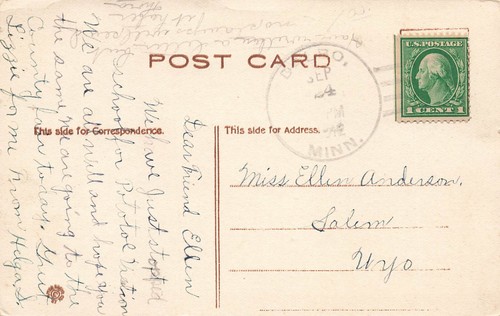 POST CARD
This side for Correspondence.
This side for Address.
U.S. POSTAGE
1 CENT 1
SEP
24
PM
MINN.
Miss Ellen Anderson.
Salem
Wyo
Dear Friend Ellen
We have Just stopped
School for Potatoe Vacation
We are all well and hope you
the same. We are going to the
County fair to-day. Greet
Lizzie for me From Helga S.